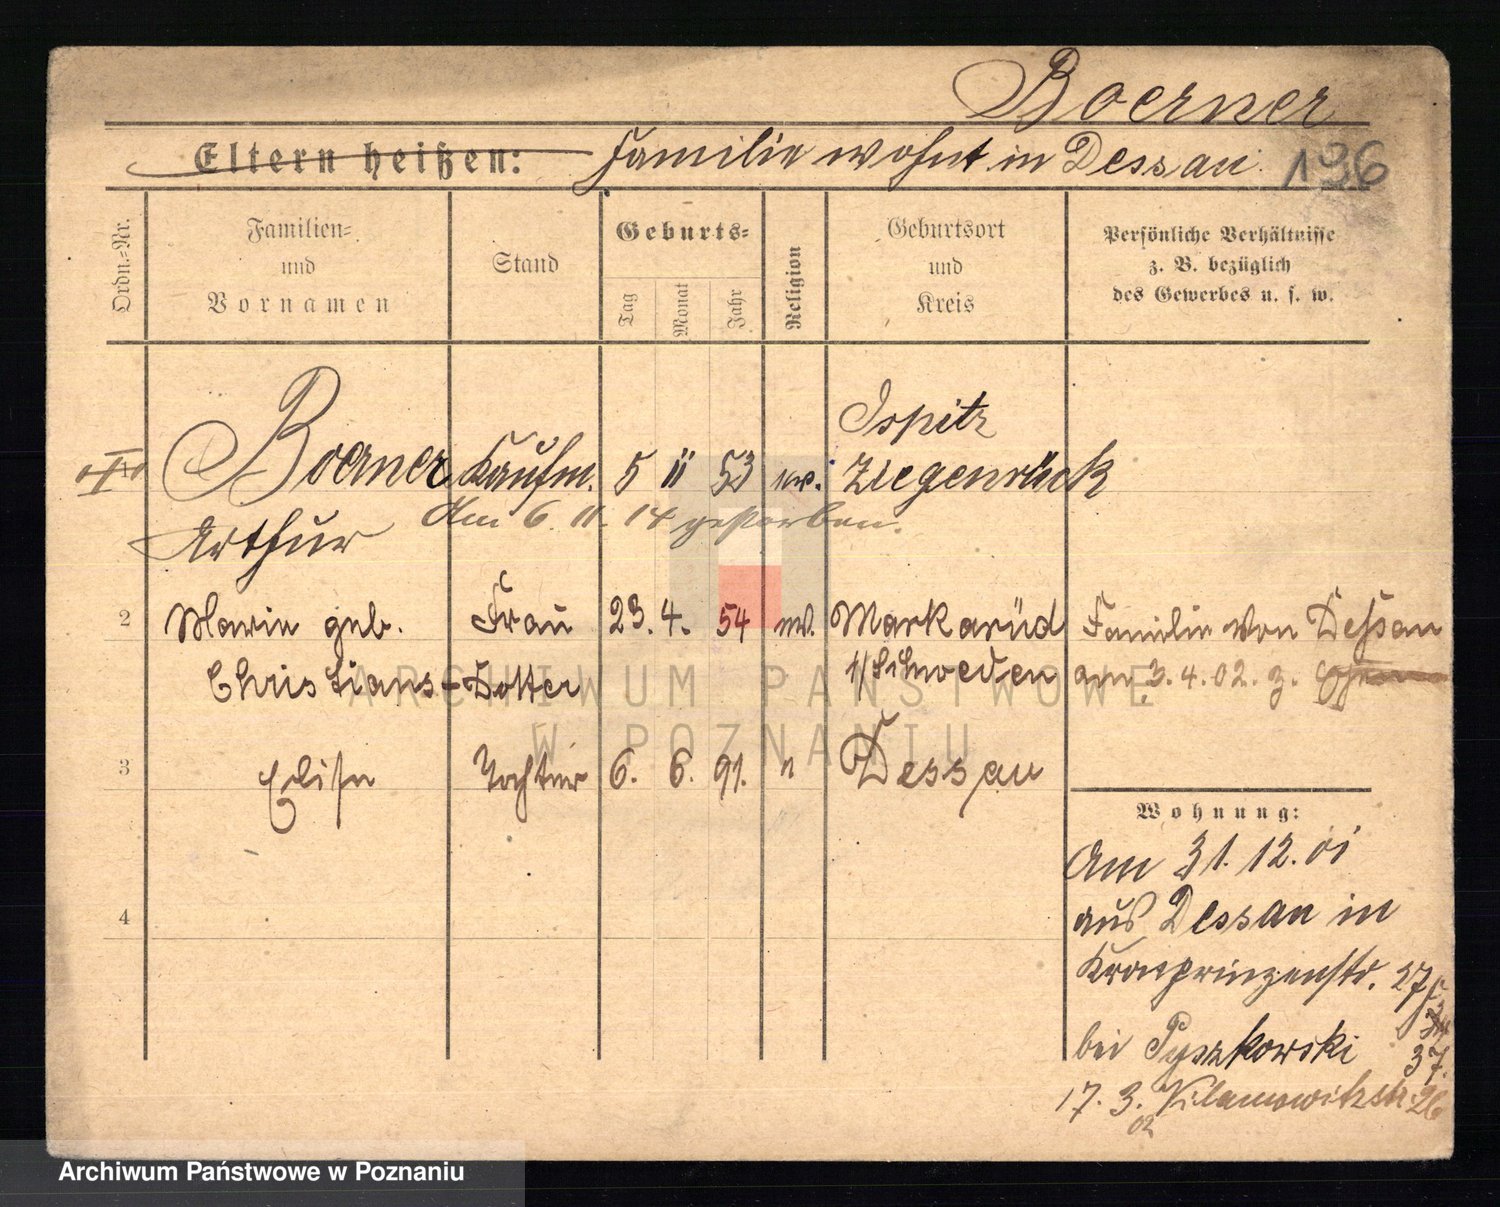 Boerner
Eltern heißen: Familie wohnt in Dessau. 196
Ordn.-Nr.
Familien-
und
Vornamen
Stand
Geburts-
Tag
Monat
Jahr
Religion
Geburtsort
und
Kreis
Persönliche Verhältnisse
z. B. bezüglich
des Gewerbes u. s. w.
Ispitz
1 Boerner Kaufm. 5 11 53 ev. Ziegenrück
Am 6. 11. 14 gestorben.
Arthur
2 Marie geb. Frau 23. 4. 54 ev. Markarüd Familie von Dessau
Christians-Dotter i/Schweden am 3.4.02. z.
3 Elise Tochter 6. 6. 91. " Dessau
Wohnung:
Am 31. 12. 01
4
aus Dessau in
Kronprinzenstr. 27
bei Pyszkowski 37.
17. 3. 02 Vilamowitzstr. 26
ARCHIWUM PAŃSTWOWE
W POZNANIU
Archiwum Państwowe w Poznaniu